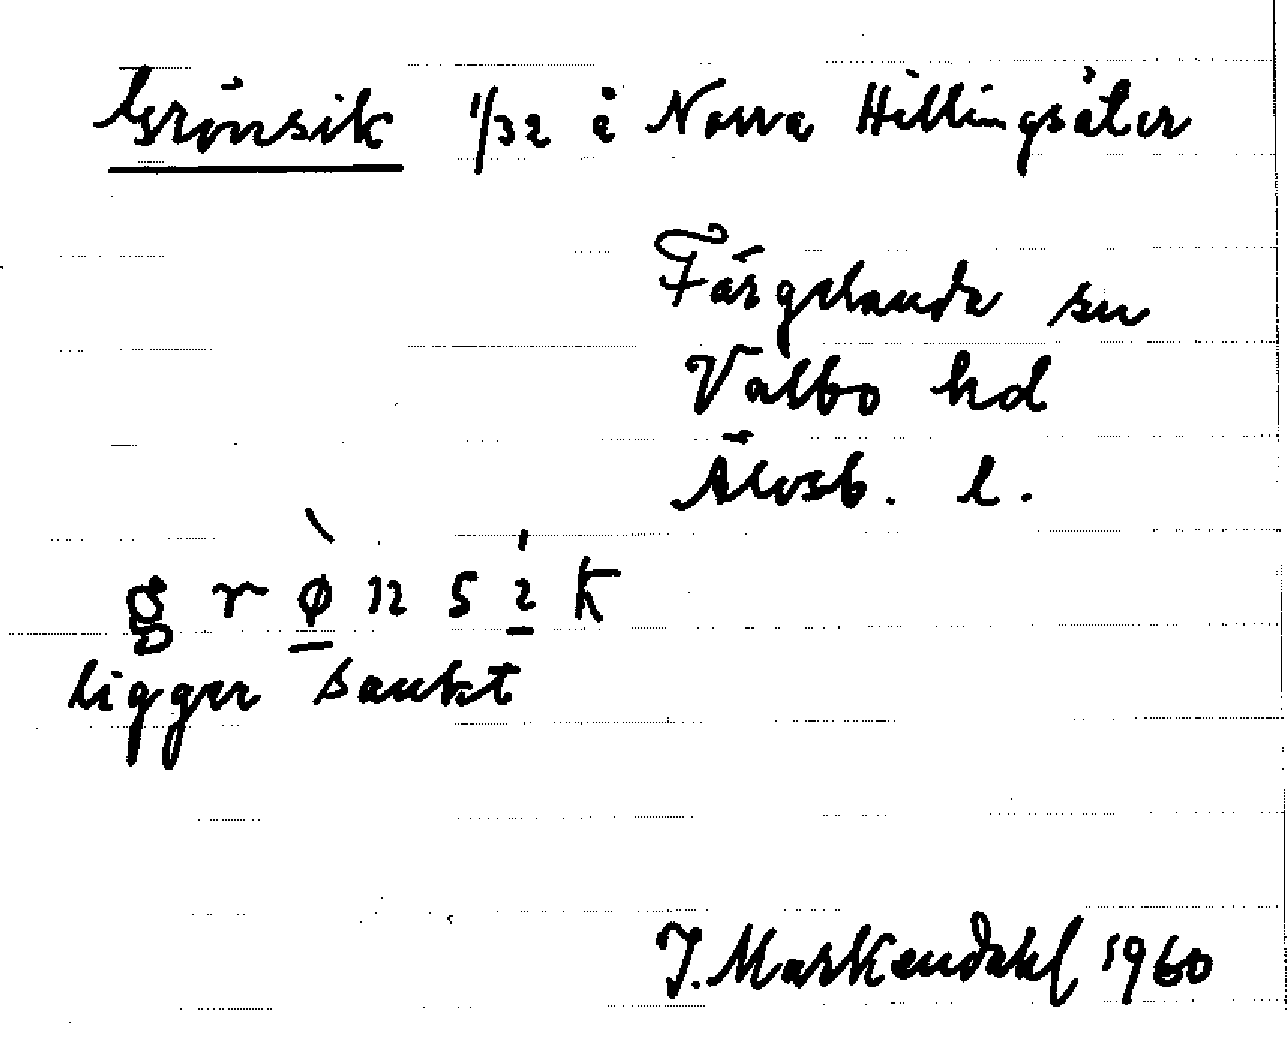 Grönsik 1/32 i Norra Hillingsäter
Färgelanda sn
Valbo hd
Älvsb. l.
grø̱̀nsí̱k
ligger sankt
J. Markendahl 1960